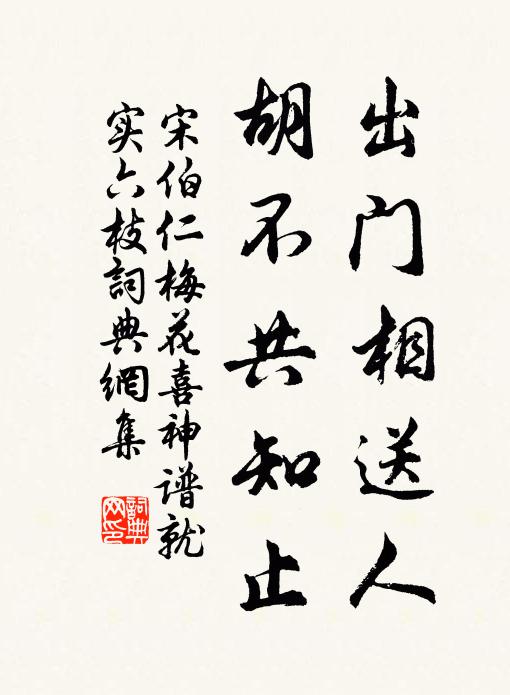 出门相送人
胡不共知止
宋伯仁梅花喜神谱就
实六枝詞典網集
詞典
网印